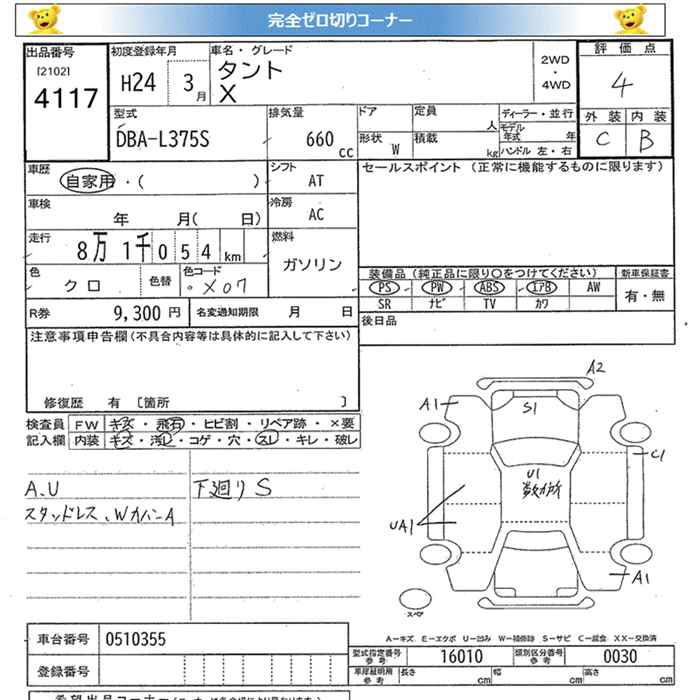 完全ゼロ切りコーナー
出品番号 初度登録年月 車名・グレード 2WD・4WD 評価点
[2102] 4117 H24 3月 タント X 4
型式 排気量 ドア 定員 人 ディーラー・並行 外装 内装
DBA-L375S 660 cc 形状 W 積載 kg モデル年式 年 ハンドル 左・右 C B
車歴 自家用・( ) シフト AT セールスポイント (正常に機能するものに限ります)
車検 年 月( 日) 冷房 AC
走行 8万 1千 0 5 4 km 燃料 ガソリン
色 クロ 色替 色コード X07 装備品(純正品に限り○をつけてください) 新車保証書
PS PW ABS エアB AW 有・無
SR ナビ TV カワ
R券 9,300円 名変通知期限 月 日 後日品
注意事項申告欄(不具合内容等は具体的に記入して下さい)
修復歴 有 [箇所 ]
検査員 FW キズ・飛石・ヒビ割・リペア跡・×要
記入欄 内装 キズ・汚レ・コゲ・穴・スレ・キレ・破レ
A、U 下廻り S
スタッドレス、WカバーA
A2
A1 S1
C1
U1
数カ所
UA1
A1
スペア
A―キズ E―エクボ U―凹み W―補修跡 S―サビ C―腐食 XX―交換済
車台番号 0510355
型式指定番号 参考 16010 類別区分番号 参考 0030
登録番号 車庫証明用 参考 長さ cm 幅 cm 高さ cm